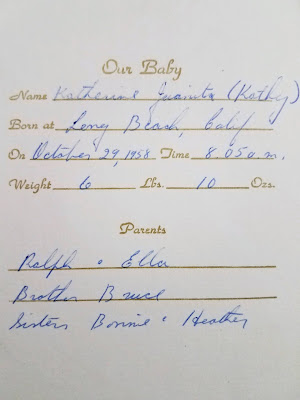 Our Baby
Name Katherine Juanita (Kathy)
Born at Long Beach, Calif
On October 29, 1958 Time 8 05 a.m.
Weight 6 Lbs. 10 Ozs.
Parents
Ralph & Ella
Brother Bruce
Sisters Bonnie & Heather